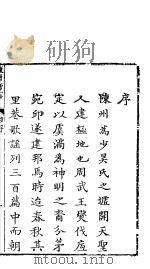 试用
序
陳州為少昊氏之墟開天聖
人建極地也周武王燮伐虔
定以虞滿為神明之裔分茅
宛邱遂建邦焉時迨春秋其
里巷歌謠列三百篇中而朝